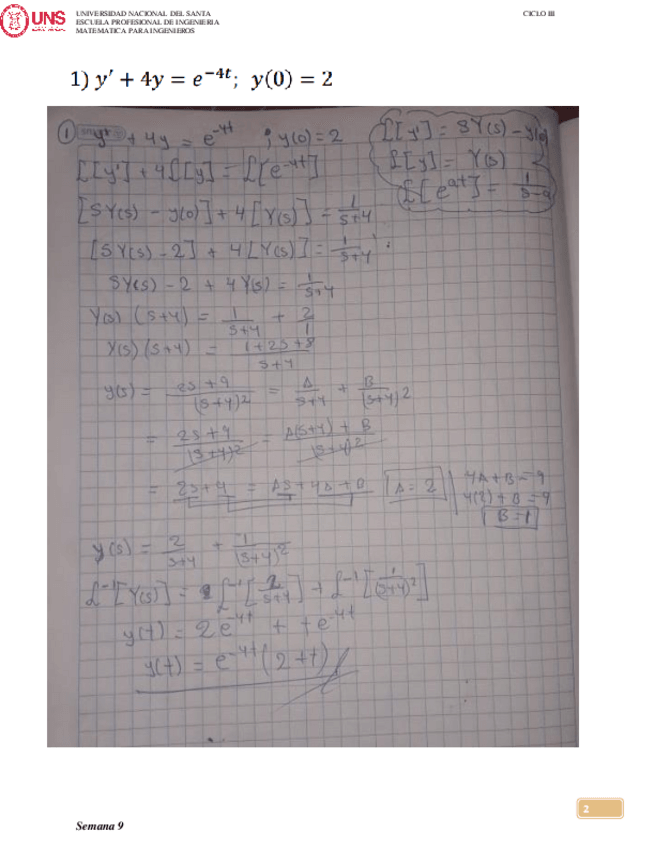 UNS
UNIVERSIDAD NACIONAL DEL SANTA
ESCUELA PROFESIONAL DE INGENIERIA
MATEMATICA PARA INGENIEROS
CICLO III
1) y′ + 4y = e^{-4t}; y(0) = 2
① y' + 4y = e^{-4t} ; y(0) = 2
£[y'] = SY(s) - y(0)
£[y] = Y(s)
£[e^{at}] = 1/(s-a)
£[y'] + 4£[y] = £[e^{-4t}]
[SY(s) - y(0)] + 4[Y(s)] = 1/(s+4)
[SY(s) - 2] + 4[Y(s)] = 1/(s+4)
SY(s) - 2 + 4Y(s) = 1/(s+4)
Y(s) (s+4) = 1/(s+4) + 2/1
Y(s) (s+4) = (1+2s+8)/(s+4)
y(s) = (2s+9)/(s+4)^2 = A/(s+4) + B/(s+4)^2
= (2s+9)/(s+4)^2 = (A(s+4) + B)/(s+4)^2
= 2s+9 = As+4A+B
A = 2
4A+B = 9
4(2)+B = 9
B = 1
y(s) = 2/(s+4) + 1/(s+4)^2
£^{-1}[Y(s)] = £^{-1}[2/(s+4)] + £^{-1}[1/(s+4)^2]
y(t) = 2e^{-4t} + te^{-4t}
y(t) = e^{-4t}(2+t)
2
Semana 9